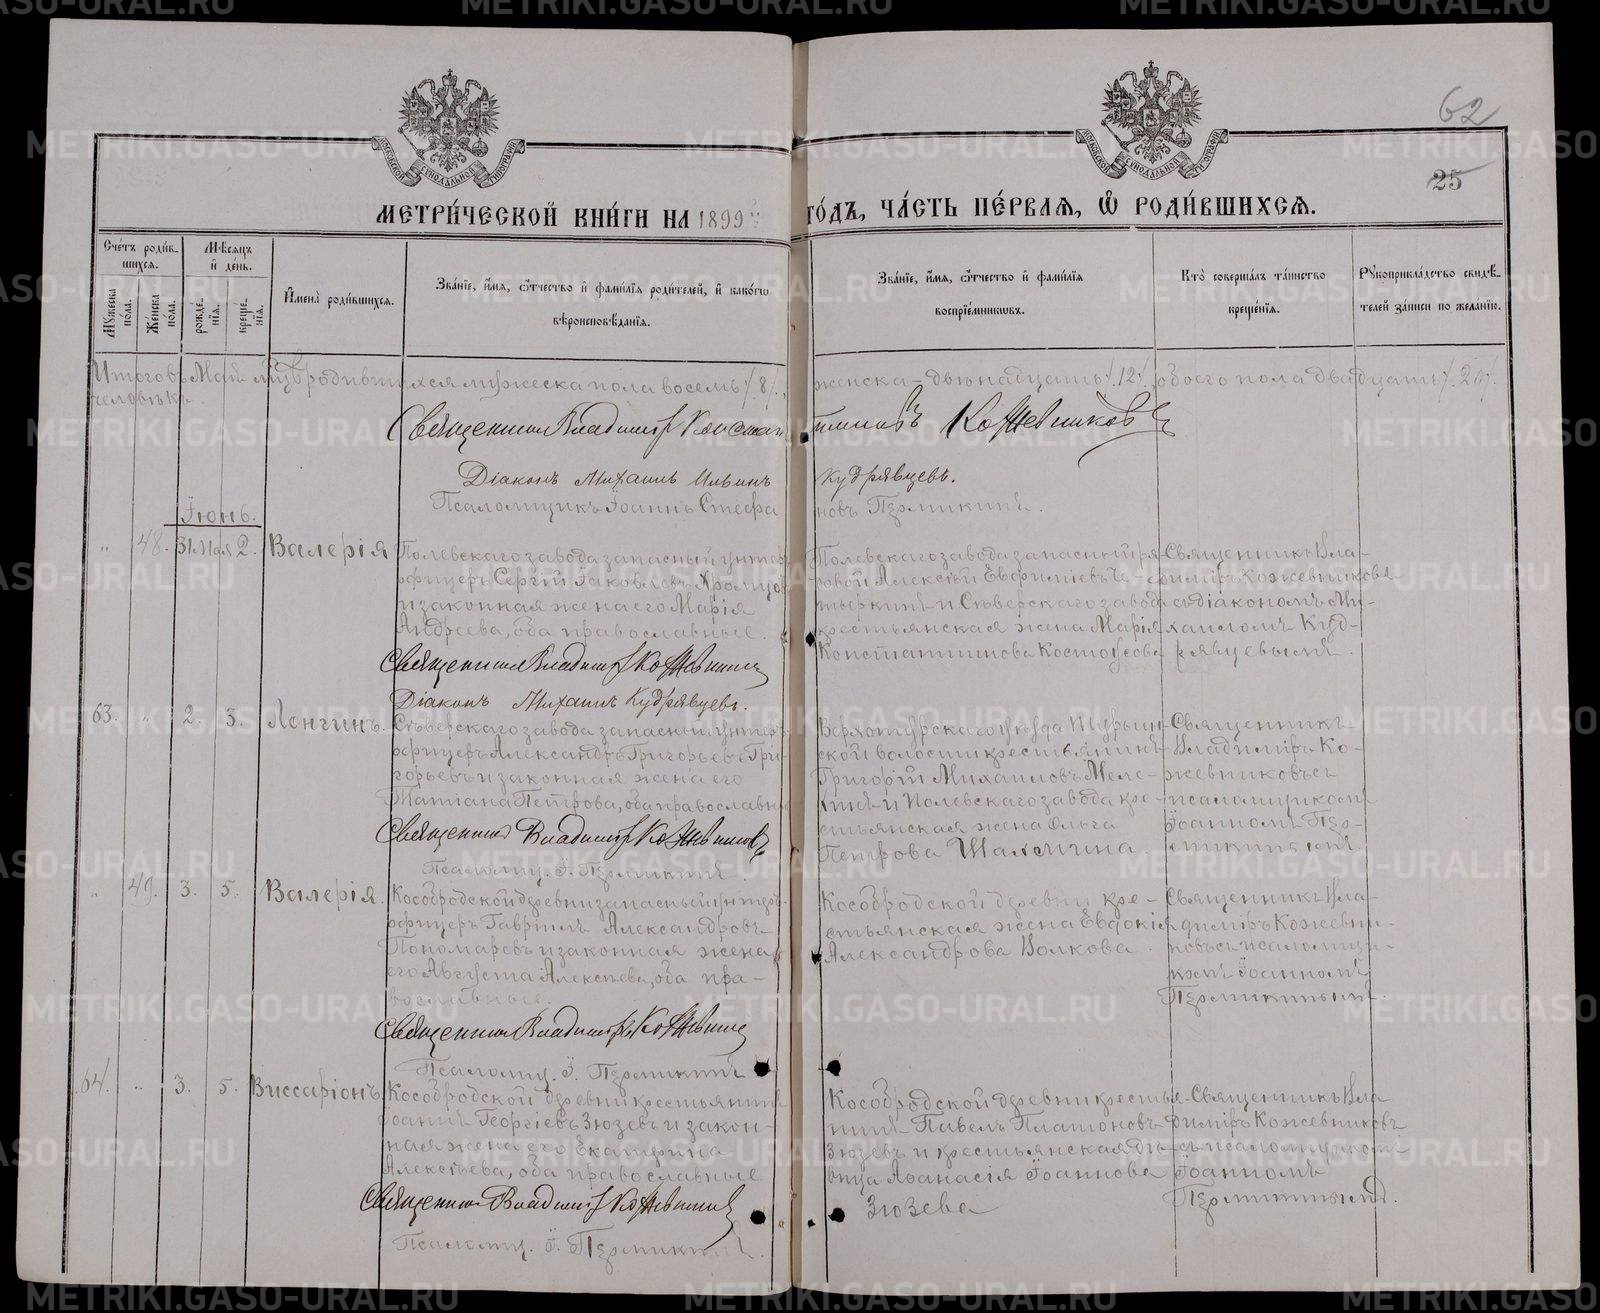 62
25
МОСКОВСКОЙ СѴНОДАЛЬНОЙ ТИПОГРАФІИ
МОСКОВСКОЙ СѴНОДАЛЬНОЙ ТИПОГРАФІИ
МЕТРИ́ЧЕСКОЙ КНИ́ГИ НА 1899 ГО́ДЪ, ЧА́СТЬ ПЕ́РВАЯ, Ѡ РОДИ́ВШИХСЯ.
Сче́тъ роди́в-
шихся.
Мѣсяцъ
и де́нь.
Му́жеска по́ла.
Же́нска по́ла.
рожде́-
нія.
креще́-
нія.
Имена̀ роди́вшихся.
Зва́ніе, и́мя, ѻ́тчество и фами́лія роди́телей, и како́гѡ
вѣроисповѣ́данія.
Зва́ніе, и́мя, ѻ́тчество и фами́лія
воспріе́мникѡвъ.
Кто̀ соверша́лъ та́инство
креще́нія.
Рукоприкла́дство свидѣ́-
телей за́писи по жела́нію.
Итого въ Маѣ м-цѣ родившихся мужеска пола восемь /8/, женска – двѣнадцать /12/, обоего пола двадцать /20/.
человѣкъ.
Священникъ Владиміръ Константиновъ Кожевниковъ
Діаконъ Михаилъ Ильинъ Кудрявцевъ.
Псаломщикъ Іоаннъ Стефановъ Пермикинъ.
Іюнь.
„ 48. 31 Мая 2. Валерія
Полевскаго завода запасный унтеръ
офицеръ Сергій Іаковлевъ Хромцов
и законная жена его Марія
Андреева, оба православные.
Священникъ Владиміръ Кожевников
Діаконъ Михаилъ Кудрявцевъ.
Полевскаго завода запасный ря-
довой Алексій Евфиміевъ Че-
тыркинъ и Сѣверскаго завода
крестьянская жена Марія
Константинова Костоусова
Священникъ Вла-
диміръ Кожевниковъ
съ діакономъ Ми-
хаиломъ Куд-
рявцевымъ.
63. „ 2. 3. Лонгинъ.
Сѣверскаго завода запасный унтер
офицеръ Александръ Григорьевъ Гри-
горьевъ и законная жена его
Татіана Петрова, оба православны
Священникъ Владиміръ Кожевниковъ
Псаломщ. І. Пермикинъ
Верхотурскаго уѣзда
ской волости крестьянинъ
Григорій Михаиловъ Меле-
хинъ и Полевскаго завода кре-
стьянская жена Ольга
Петрова Шахмина.
Священникъ
Владиміръ Ко-
жевниковъ съ
псаломщикомъ
Іоанномъ Пер-
микинымъ.
„ 49. 3. 5. Валерія.
Кособродской деревни запасный унтеръ
офицеръ Гавріилъ Александровъ
Пономаревъ и законная жена
его Августа Алексѣева, оба пра-
вославные.
Священникъ Владиміръ Кожевник
Псаломщ. І. Пермикинъ
Кособродской деревни кре-
стьянская жена Евдокія
Александрова Волкова.
Священникъ Вла-
диміръ Кожевни-
ковъ съ псаломщи-
комъ Іоанномъ
Пермикинымъ.
64. „ 3. 5. Виссаріонъ.
Кособродской деревни крестьянинъ
Іоаннъ Георгіевъ Зюзевъ и закон-
ная жена его Екатерина
Алексѣева, оба православные
Священникъ Владиміръ Кожевников
Псаломщ. І. Пермикинъ.
Кособродской деревни крестья-
нинъ Павелъ Платоновъ
Зюзевъ и крестьянская дѣ-
вица Аѳанасія Іоаннова
Зюзева
Священникъ Вла
диміръ Кожевниковъ
съ псаломщиком-
Іоанномъ
Пермикинымъ.
METRIKI.GASO-URAL.RU